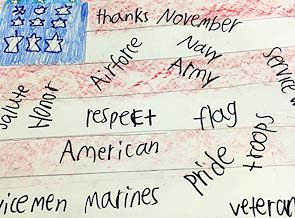 thanks November
Airforce Navy
salute Honor Army service
respect flag
American Pride troops
vicemen marines veteran